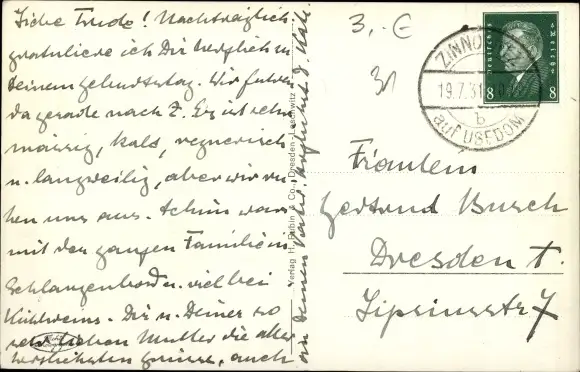 Liebe Trude! Nachträglich
gratuliere ich Dir herzlich zu
Deinem Geburtstag. Wir fuhren
da gerade nach Z. Es ist sehr
mässig, kalt, regnerisch
u. langweilig, aber wir ru-
hen uns aus. Achim war
mit der ganzen Familie in
Schlangenbad u. viel bei
Kühlweins. Dir u. Deiner so
sehr lieben Mutter die aller
herzlichsten Grüsse, auch
an Deinen Vater,
Verlag H. Rubin & Co., Dresden-Blasewitz
3,- €
31
ZINNOWITZ
19.7.31
b
auf USEDOM
Deutsches Reich
8 8
Fräulein
Gertrud Busch
Dresden A.
Lipsiusstr 7